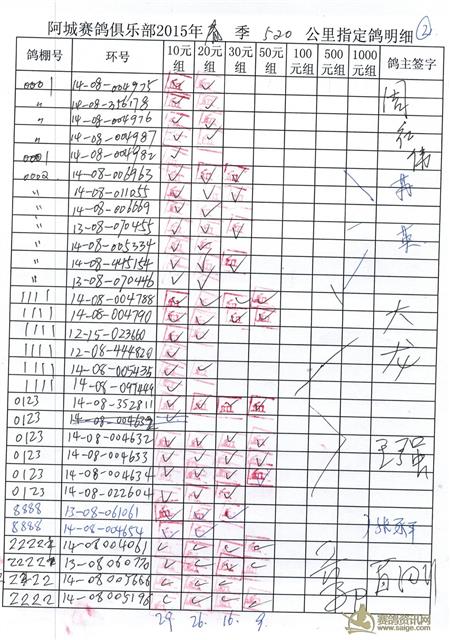 阿城赛鸽俱乐部2015年 季 520 公里指定鸽明细 ②
鸽棚号 环号 10元组 20元组 30元组 50元组 100元组 500元组 1000元组 鸽主签字
0001 14-08-004975 ✓ ✓
〃 14-08-356178 ✓ ✓
〃 14-08-004976 ✓ ✓
〃 14-08-004987 ✓ ✓
0001 14-08-004982 ✓
0002 14-08-006963 ✓ ✓ ✓
〃 14-08-011055 ✓ ✓ ✓
〃 14-08-006669 ✓ ✓ ✓
〃 13-08-070455 ✓ ✓ ✓
〃 14-08-005334 ✓ ✓
〃 14-08-445154 ✓ ✓ ✓
〃 13-08-070446 ✓ ✓
1111 14-08-004788 ✓ ✓ ✓ ✓
1111 14-08-004790 ✓ ✓ ✓ ✓
1111 12-15-023660 ✓
1111 12-08-444820 ✓
1111 14-08-005435 ✓ ✓
1111 14-08-047449 ✓
0123 14-08-352811 ✓ ✓ ✓ ✓
0123 14-08-004639
0123 14-08-004632 ✓ ✓ ✓ ✓
0123 14-08-004653 ✓ ✓ ✓ ✓
0123 14-08-004634 ✓ ✓ ✓ ✓
0123 14-08-022604 ✓ ✓
王强
8888 13-08-061061 ✓ ✓ ✓
8888 14-08-004654 ✓ ✓
2222 14-08004061 ✓ ✓ ✓ ✓
2222 13-08060770 ✓ ✓ ✓ ✓
2222 14-08005666 ✓ ✓ ✓
2222 14-08005196 ✓ ✓ ✓
29. 26. 16. 9.
赛鸽资讯网
www.saige.com